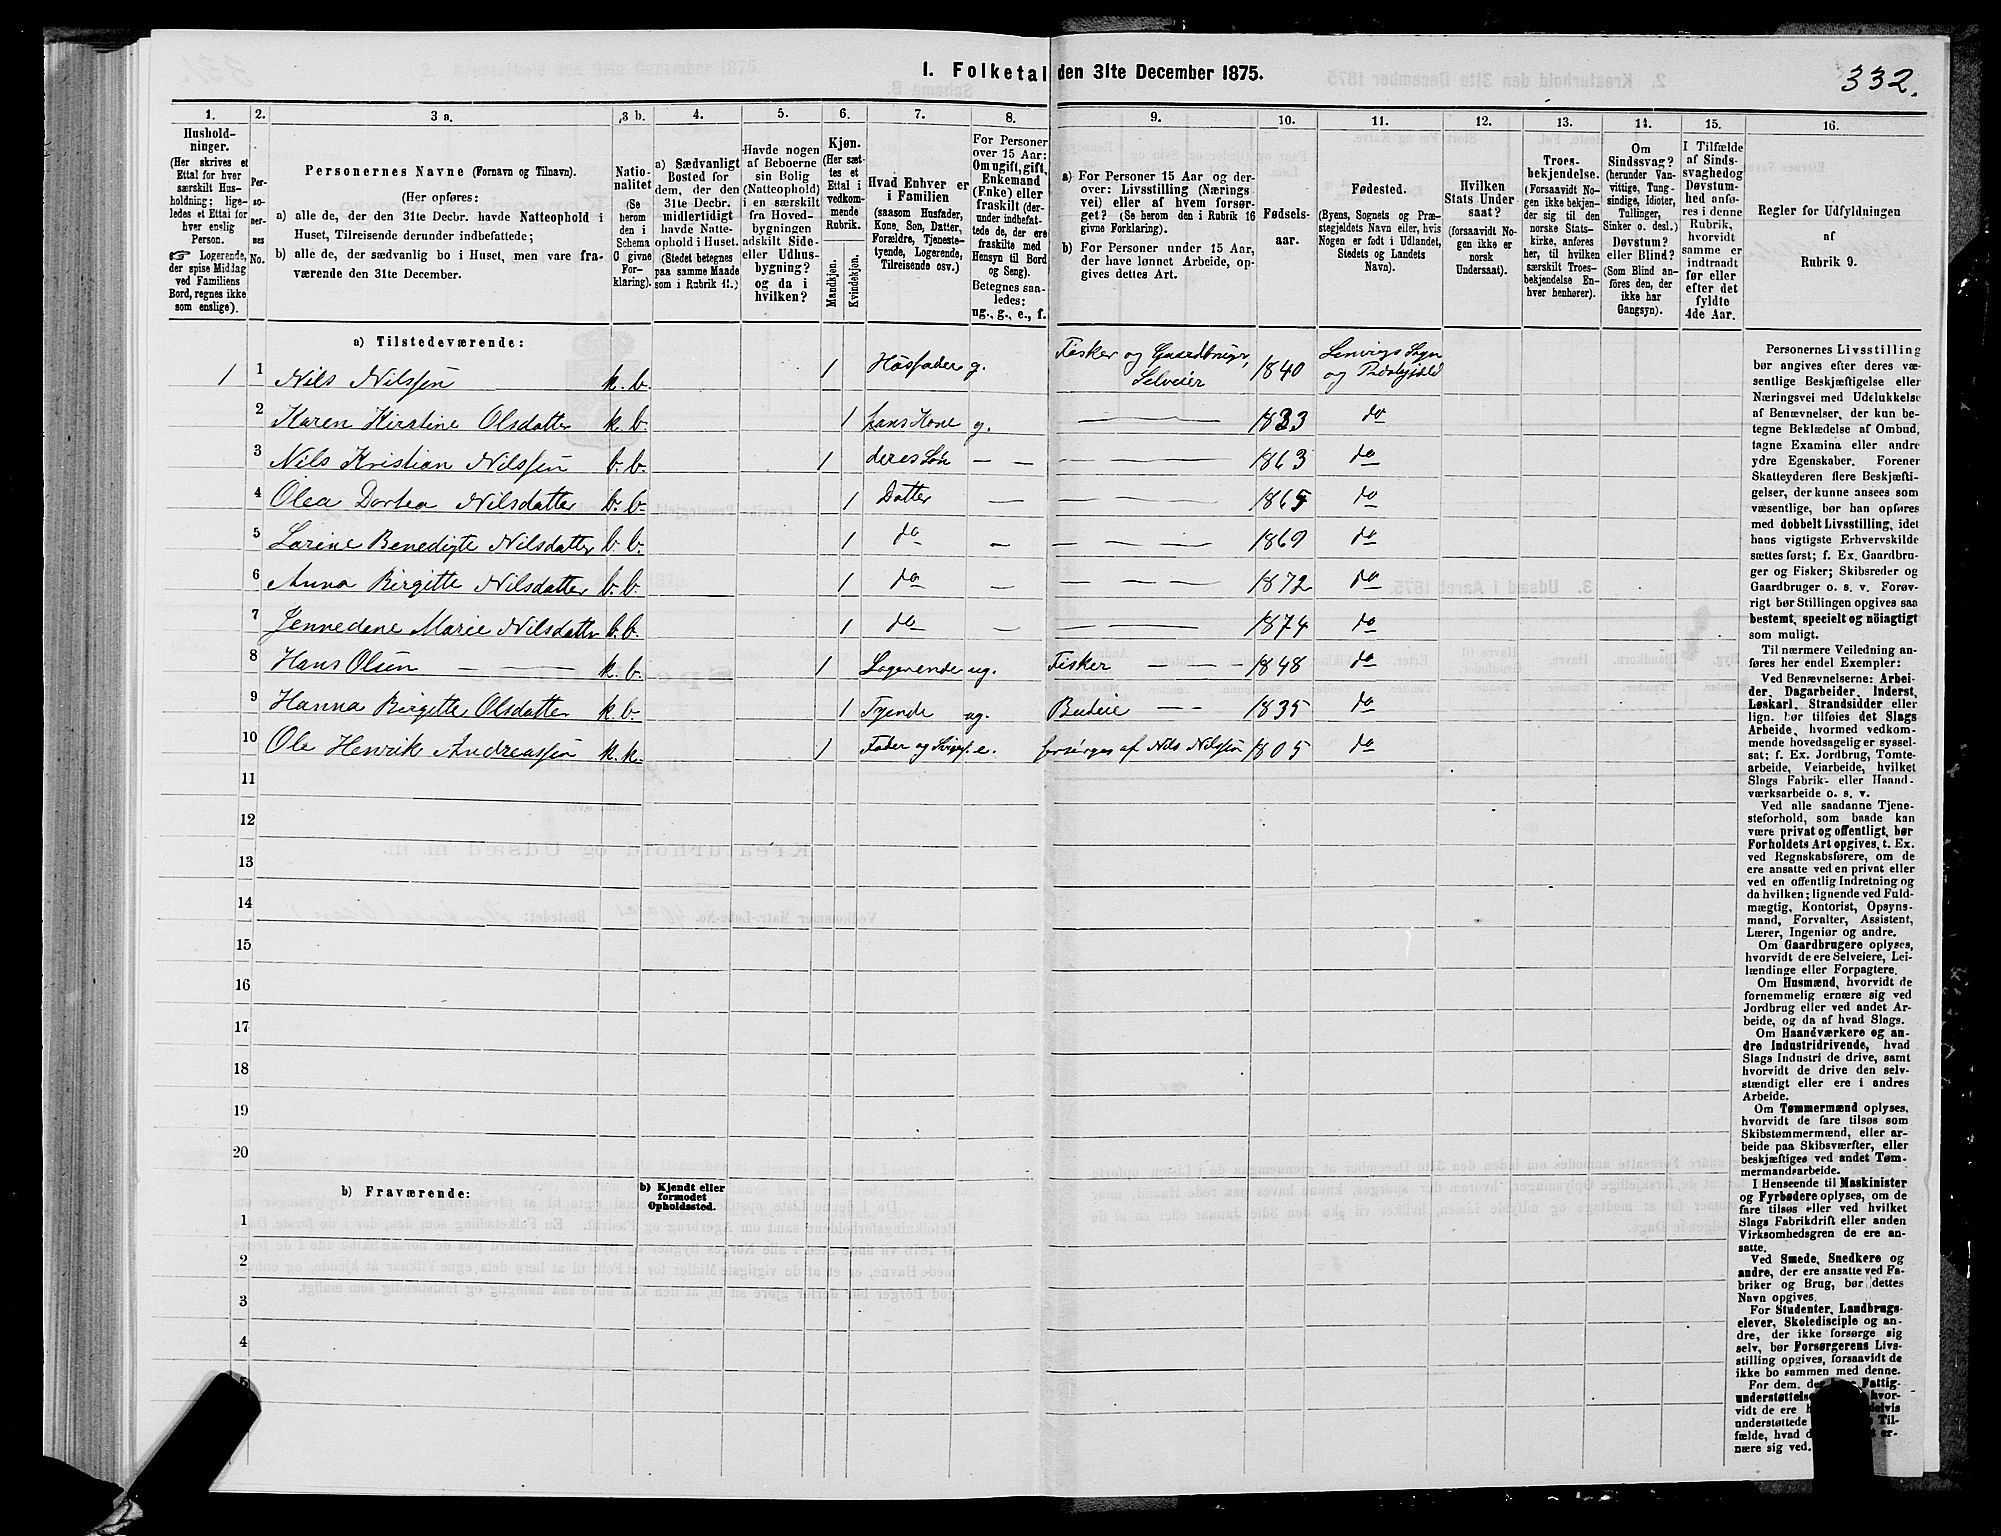 1. Folketal den 31te December 1875.
332.
1. 2. 3 a. 3 b. 4. 5. 6. 7. 8. 9. 10. 11. 12. 13. 14. 15. 16.
Hushold-
ninger.
(Her skrives et
Ettal for hver
særskilt Hus-
holdning; lige-
ledes et Ettal for
hver enslig
Person.
☞ Logerende,
der spise Middag
ved Familiens
Bord, regnes ikke
som enslige).
Per-
so-
ner-
nes
No.
Personernes Navne (Fornavn og Tilnavn).
(Her opføres:
a) alle de, der den 31te Decbr. havde Natteophold i
Huset, Tilreisende derunder indbefattede;
b) alle de, der sædvanlig bo i Huset, men vare fra-
værende den 31te December.
Natio-
nalitet
(Se
herom
den i
Schema
C givne
For-
klaring).
a) Sædvanligt
Bosted for
dem, der den
31te Decbr.
midlertidigt
havde Natte-
ophold i Huset.
(Stedet betegnes
paa samme Maade
som i Rubrik 11.)
Havde nogen
af Beboerne
sin Bolig
(Natteophold)
i en særskilt
fra Hoved-
bygningen
adskilt Side-
eller Udhus-
bygning?
og da i
hvilken?
Kjøn.
(Her sæt-
tes et
Ettal i
vedkom-
mende
Rubrik.
Mandkjøn.
Kvindekjøn.
Hvad Enhver er
i Familien
(saasom Husfader,
Kone, Søn, Datter,
Forældre, Tjeneste-
tyende, Logerende,
Tilreisende osv.)
For Personer
over 15 Aar:
Om ugift, gift,
Enkemand
(Enke) eller
fraskilt (der-
under indbefat-
tede de, der ere
fraskilte med
Hensyn til Bord
og Seng).
Betegnes saa-
ledes:
ug., g., e., f.
a) For Personer 15 Aar og der-
over: Livsstilling (Nærings-
vei) eller af hvem forsør-
get? (Se herom den i Rubrik 16
givne Forklaring).
b) For Personer under 15 Aar,
der have lønnet Arbeide, op-
gives dettes Art.
Fødsels-
aar.
Fødested.
(Byens, Sognets og Præ-
stegjeldets Navn eller, hvis
Nogen er født i Udlandet,
Stedets og Landets
Navn).
Hvilken
Stats Under-
saat?
(forsaavidt No-
gen ikke er
norsk
Undersaat).
Troes-
bekjendelse.
(Forsaavidt No-
gen ikke bekjen-
der sig til den
norske Stats-
kirke, anføres
her, til hvilken
særskilt Troes-
bekjendelse En-
hver henhører).
Om
Sindssvag?
(herunder Van-
vittige, Tung-
sindige, Idioter,
Tullinger,
Sinker o. desl.)
Døvstum?
eller Blind?
(Som Blind an-
føres den, der
ikke har
Gangsyn).
I Tilfælde
af Sinds-
svaghed og
Døvstum-
hed anfø-
res i denne
Rubrik,
hvorvidt
samme er
indtraadt
før eller
efter det
fyldte
4de Aar.
Regler for Udfyldningen
af
Rubrik 9.
a) Tilstedeværende:
1 1 Nils Nilssen k. b. 1 Husfader g. Fisker og Gaardbruger, Selveier 1840 Lenvigs Sogn og Præstegjæld
2 Karen Kirstine Olsdatter k. b. 1 hans Kone g. — — — 1833 do
3 Nils Kristian Nilssen b. b. 1 deres Søn — — — — — 1863 do
4 Olea Dortea Nilsdatter b. b. 1 Datter — — — — 1865 do
5 Lorine Benedigte Nilsdatter b. b. 1 do — — — — 1869 do
6 Anna Birgitte Nilsdatter b. b. 1 do — — — — 1872 do
7 Jennedene Marie Nilsdatter b. b. 1 do — — — — 1874 do
8 Hans Olsen — — k. b. 1 Logerende ug. Fisker — — - 1848 do
9 Hanna Birgitte Olsdatter k. b. 1 Tyende ug. Budeie — — 1835 do
10 Ole Henrik Andreassen k. k. 1 Fader og Svigf. e. forsørges af Nils Nilssen 1805 do
11
12
13
14
15
16
17
18
19
20
b) Fraværende:
b) Kjendt eller
formodet
Opholdssted.
1
2
3
4
5
Personernes Livsstilling
bør angives efter deres væ-
sentlige Beskjæftigelse eller
Næringsvei med Udelukkelse
af Benævnelser, der kun be-
tegne Beklædelse af Ombud,
tagne Examina eller andre
ydre Egenskaber. Forener
Skatteyderen flere Beskjæfti-
gelser, der kunne ansees som
væsentlige, bør han opføres
med dobbelt Livsstilling, idet
hans vigtigste Erhvervskilde
sættes først; f. Ex. Gaardbru-
ger og Fisker; Skibsreder og
Gaardbruger o. s. v. Forøv-
rigt bør Stillingen opgives saa
bestemt, specielt og nöiagtigt
som muligt.
Til nærmere Veiledning an-
føres her endel Exempler:
Ved Benævnelserne: Arbei-
der, Dagarbeider, Inderst,
Løskarl, Strandsidder eller
lign. bør tilføies det Slags
Arbeide, hvormed vedkom-
mende hovedsagelig er syssel-
sat; f. Ex. Jordbrug, Tomte-
arbeide, Veiarbeide, hvilket
Slags Fabrik- eller Haand-
værksarbeide o. s. v.
Ved alle saadanne Tjene-
steforhold, som baade kan
være privat og offentligt, bør
Forholdets Art opgives, t. Ex.
ved Regnskabsførere, om de
ere ansatte ved en privat eller
ved en offentlig Indretning og
da hvilken; lignende ved Fuld-
mægtig, Kontorist, Opsyns-
mand, Forvalter, Assistent,
Lærer, Ingeniør og andre.
Om Gaardbrugere oplyses,
hvorvidt de ere Selveiere, Lei-
lændinge eller Forpagtere.
Om Husmænd, hvorvidt de
fornemmelig ernære sig ved
Jordbrug eller ved andet Ar-
beide, og da af hvad Slags.
Om Haandværkere og an-
dre Industridrivende, hvad
Slags Industri de drive, samt
hvorvidt de drive den selv-
stændigt eller ere i andres
Arbeide.
Om Tømmermænd oplyses,
hvorvidt de fare tilsøs som
Skibstømmermænd, eller ar-
beide paa Skibsværfter, eller
beskjæftiges ved andet Tøm-
mermandsarbeide.
I Henseende til Maskinister
og Fyrbødere oplyses, om de
fare tilsøs eller ved hvilket
Slags Fabrikdrift eller anden
Virksomhedsgren de ere an-
satte.
Ved Smede, Snedkere og
andre, der ere ansatte ved Fa-
briker og Brug, bør dettes
Navn opgives.
For Studenter, Landbrugs-
elever, Skoledisciple og an-
dre, der ikke forsørge sig
selv, bør Forsørgerens Livs-
stilling opgives, forsaavidt de
ikke bo sammen med denne.
For dem, de Fattig-
understøttelse hvor-
vidt de ere delvis
understøttede Til-
fælde, hvad d er-
nære sig ved.